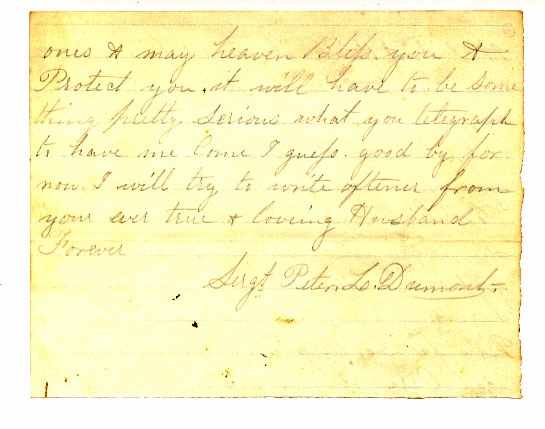 ones & may heaven Bless you &
Protect you. it will have to be some
thing pretty serious what you telegraph
to have me Come I guess. good by for
now I will try to write oftener from
your ever true & loveing Husband
Forever
Sergt Peter L. Dumont